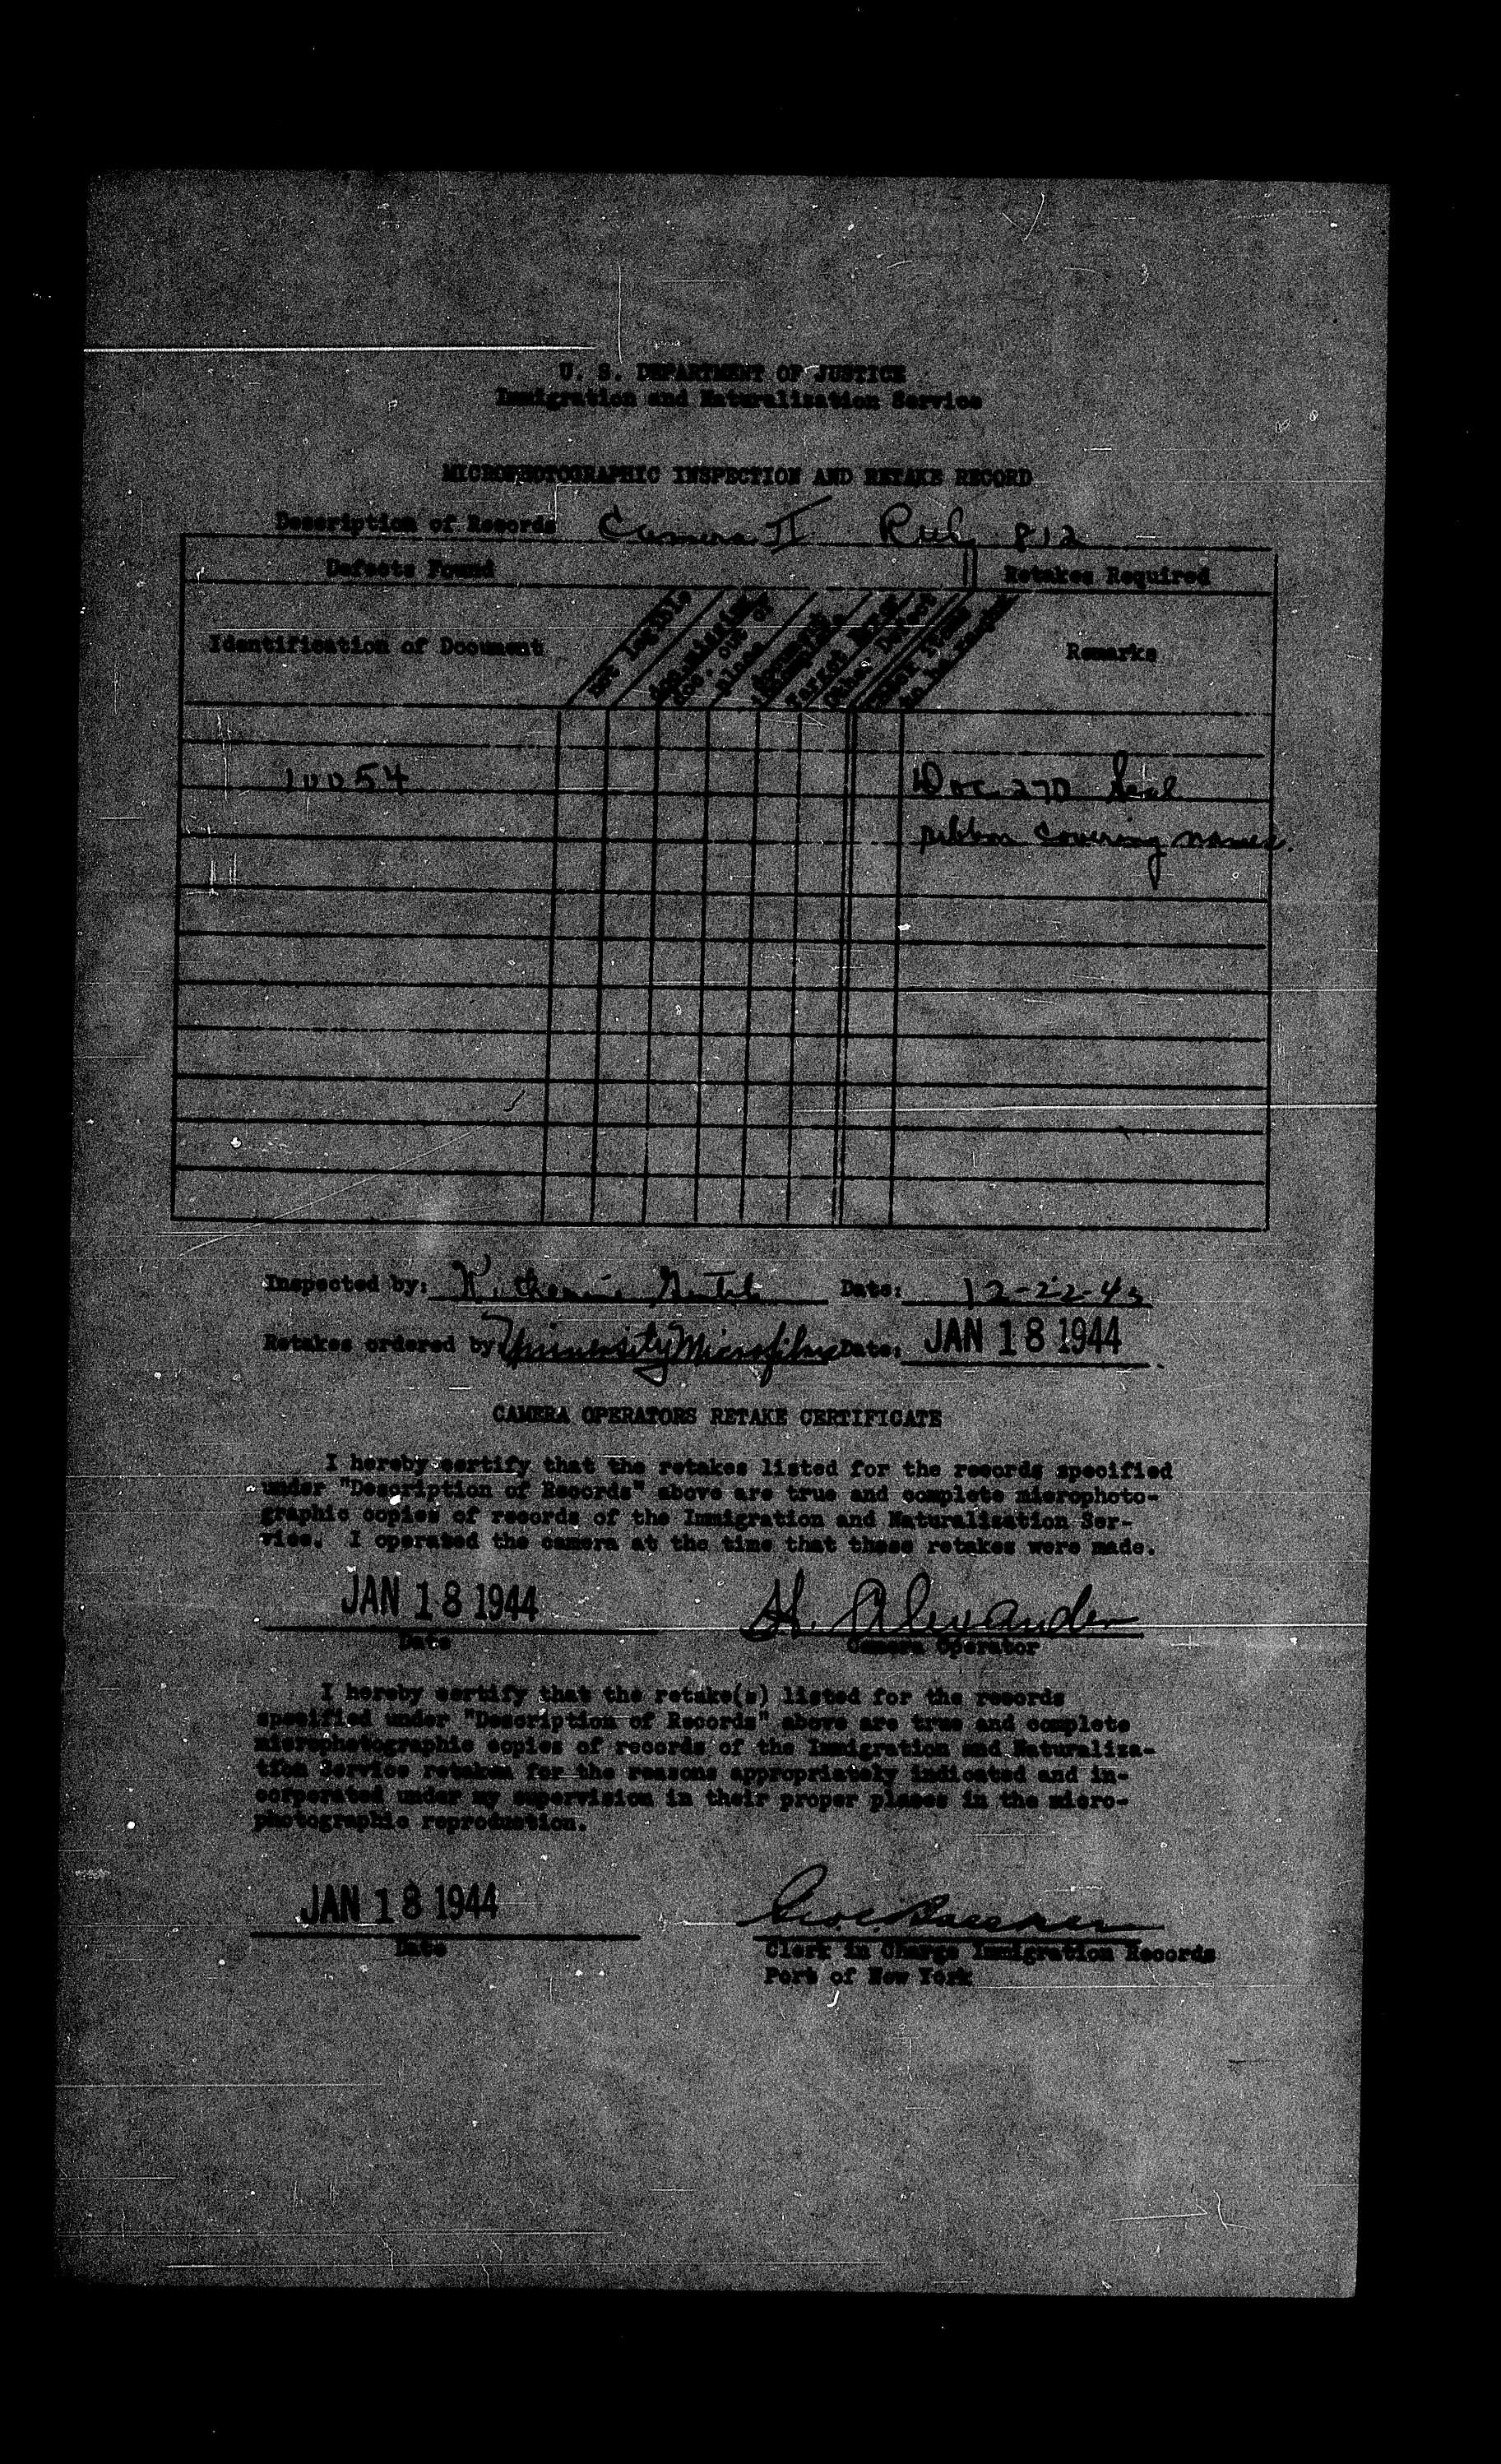 U. S. DEPARTMENT OF JUSTICE
Immigration and Naturalization Service
MICROPHOTOGRAPHIC INSPECTION AND RETAKE RECORD
Description of Records Camera II Reel 812
Defects Found
Retakes Required
Identification of Document
Not Legible
Remarks
10054
Doc 270 Seal
ribbon covering names.
Inspected by: Date: 12-22-43
Retakes ordered by: University Microfilms Date: JAN 18 1944
CAMERA OPERATORS RETAKE CERTIFICATE
I hereby certify that the retakes listed for the records specified
under "Description of Records" above are true and complete microphoto-
graphic copies of records of the Immigration and Naturalization Ser-
vice. I operated the camera at the time that these retakes were made.
JAN 18 1944 H. Alexander
Date Camera Operator
I hereby certify that the retake(s) listed for the records
specified under "Description of Records" above are true and complete
microphotographic copies of records of the Immigration and Naturaliza-
tion Service retaken for the reasons appropriately indicated and in-
corporated under my supervision in their proper places in the micro-
photographic reproduction.
JAN 18 1944
Date Clerk in Charge Immigration Records
Port of New York